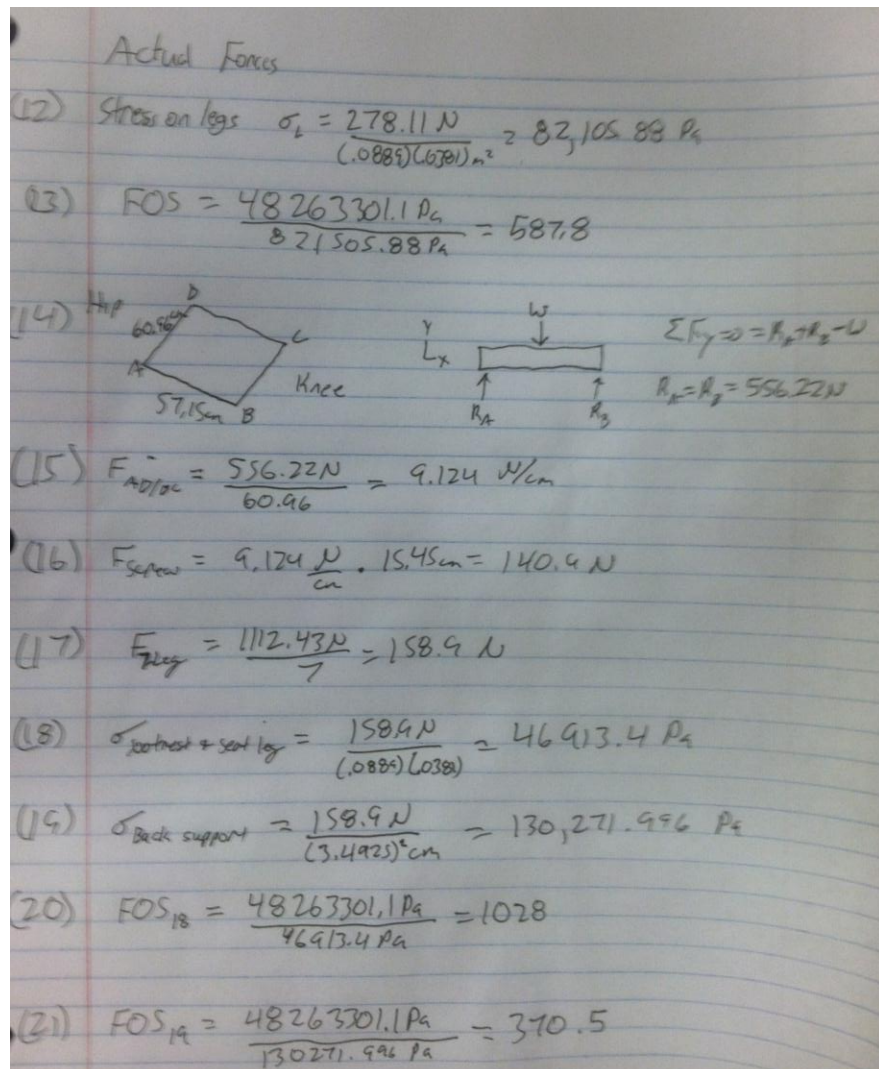 Actual Forces
(12) Stress on legs σ_L = 278.11 N / (.0889)(.0381) m² = 82,105.88 Pa
(13) FOS = 48263301.1 Pa / 821505.88 Pa = 587.8
(14) Hip D 60.96cm A C Knee 57.15cm B Y X W R_A R_B ΣF_y=0=R_A+R_B-W
R_A=R_B=556.22N
(15) F_AD/BC = 556.22N / 60.96 = 9.124 N/cm
(16) F_screw = 9.124 N/cm · 15.45cm = 140.9 N
(17) F_leg = 1112.43N / 7 = 158.9 N
(18) σ_footrest + seat leg = 158.9N / (.0889)(.0381) = 46913.4 Pa
(19) σ_Back support = 158.9 N / (3.4925)²cm = 130,271.996 Pa
(20) FOS_18 = 48263301.1 Pa / 46913.4 Pa = 1028
(21) FOS_19 = 48263301.1Pa / 130271.996 Pa = 370.5